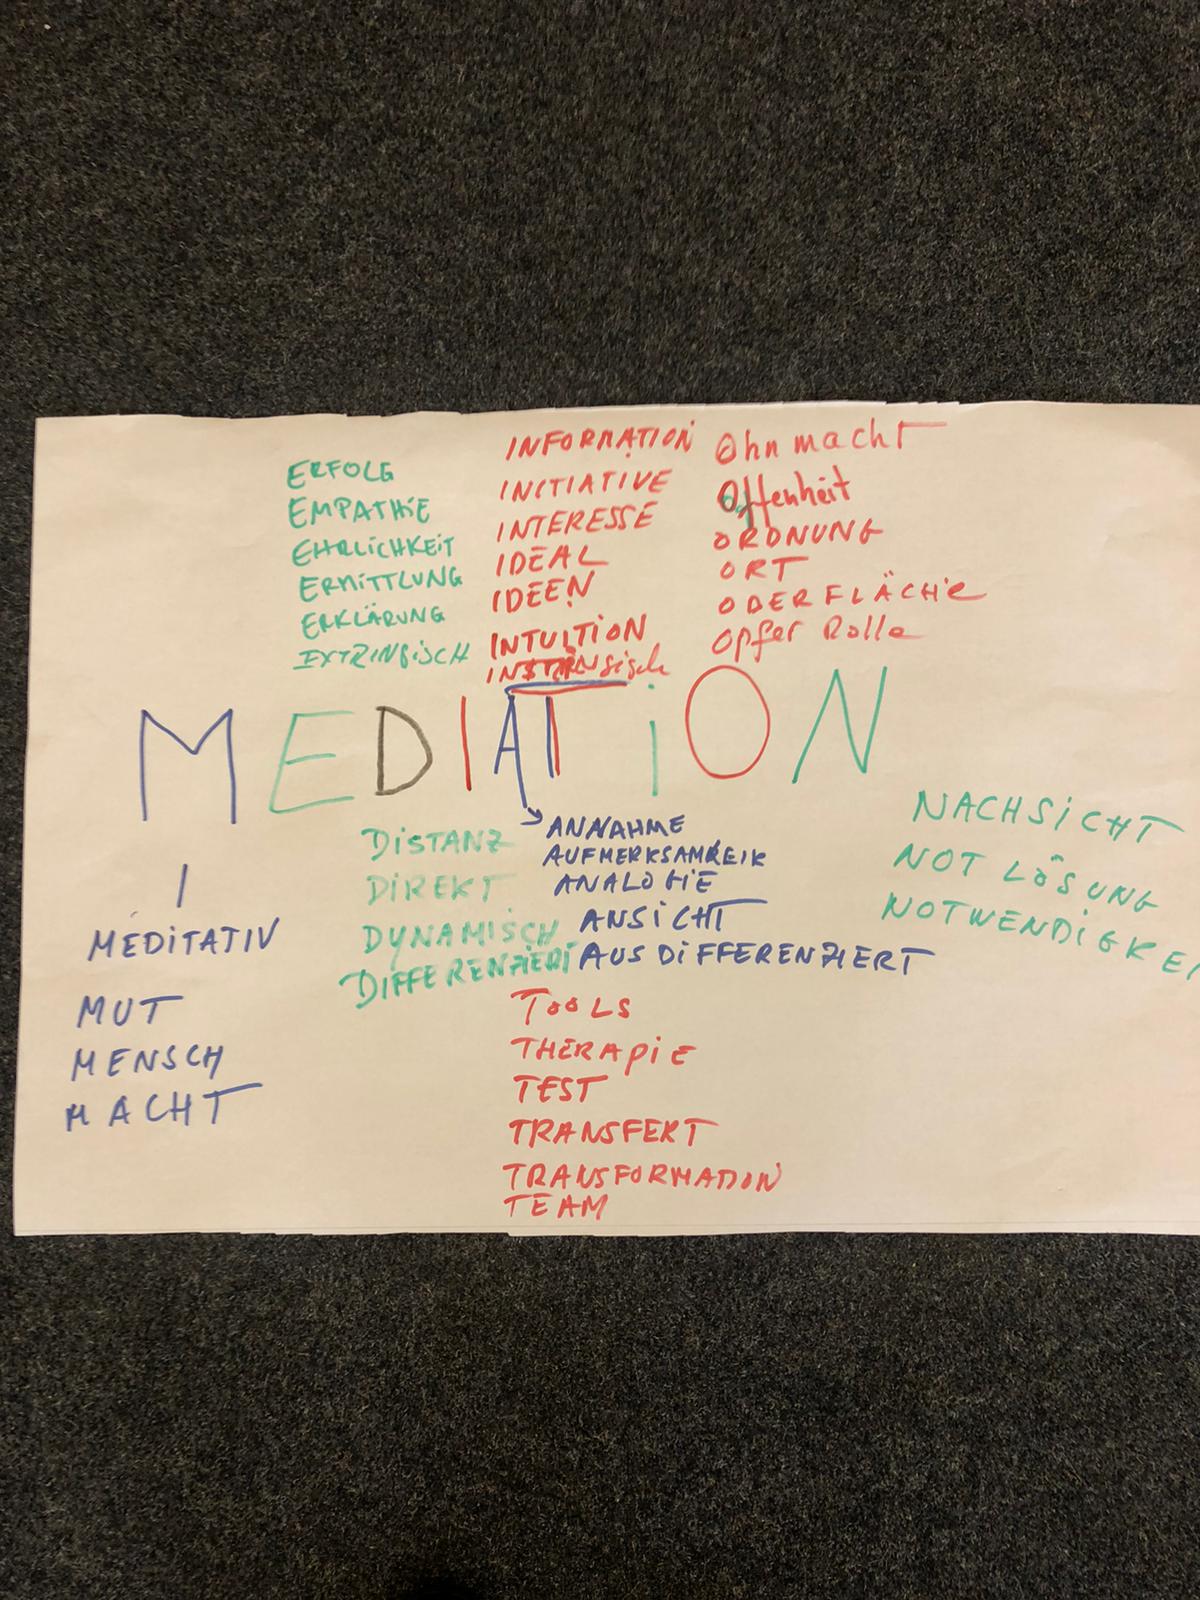 ERFOLG
EMPATHiE
EHRLiCHKEiT
ERMiTTLUNG
ERKLÄRUNG
EXTRINSiSCH
INFORMATION
INITIATIVE
INTERESSE
IDEAL
IDEEN
INTUITION
Ohnmacht
Offenheit
ORDNUNG
ORT
ODERFLÄCHE
Opfer Rolle
MEDIATiON
MEDiTATiV
MUT
MENSCH
MACHT
DiSTANZ
DiREKT
DYNAMiSCH
DiFFERENZiERT
ANNAHME
AUFMERKSAMKEIK
ANALOGiE
ANSiCHT
AUSDiFFERENZiERT
TOOLS
THERAPiE
TEST
TRANSFERT
TRANSFORMATION
TEAM
NACHSiCHT
NOT LÖSUNG
NOTWENDiGKEI